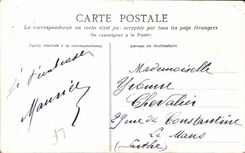 CARTE POSTALE
La correspondance au recto n'est pas acceptée par tous les pays étrangers
(Se renseigner à la Poste)
Partie réservée à la correspondance
Adresse du destinataire
Je t'embrasse
Maurice
Mademoiselle
Yvonne
Chevalier
29 rue de Constantine
Le Mans
(Sarthe)